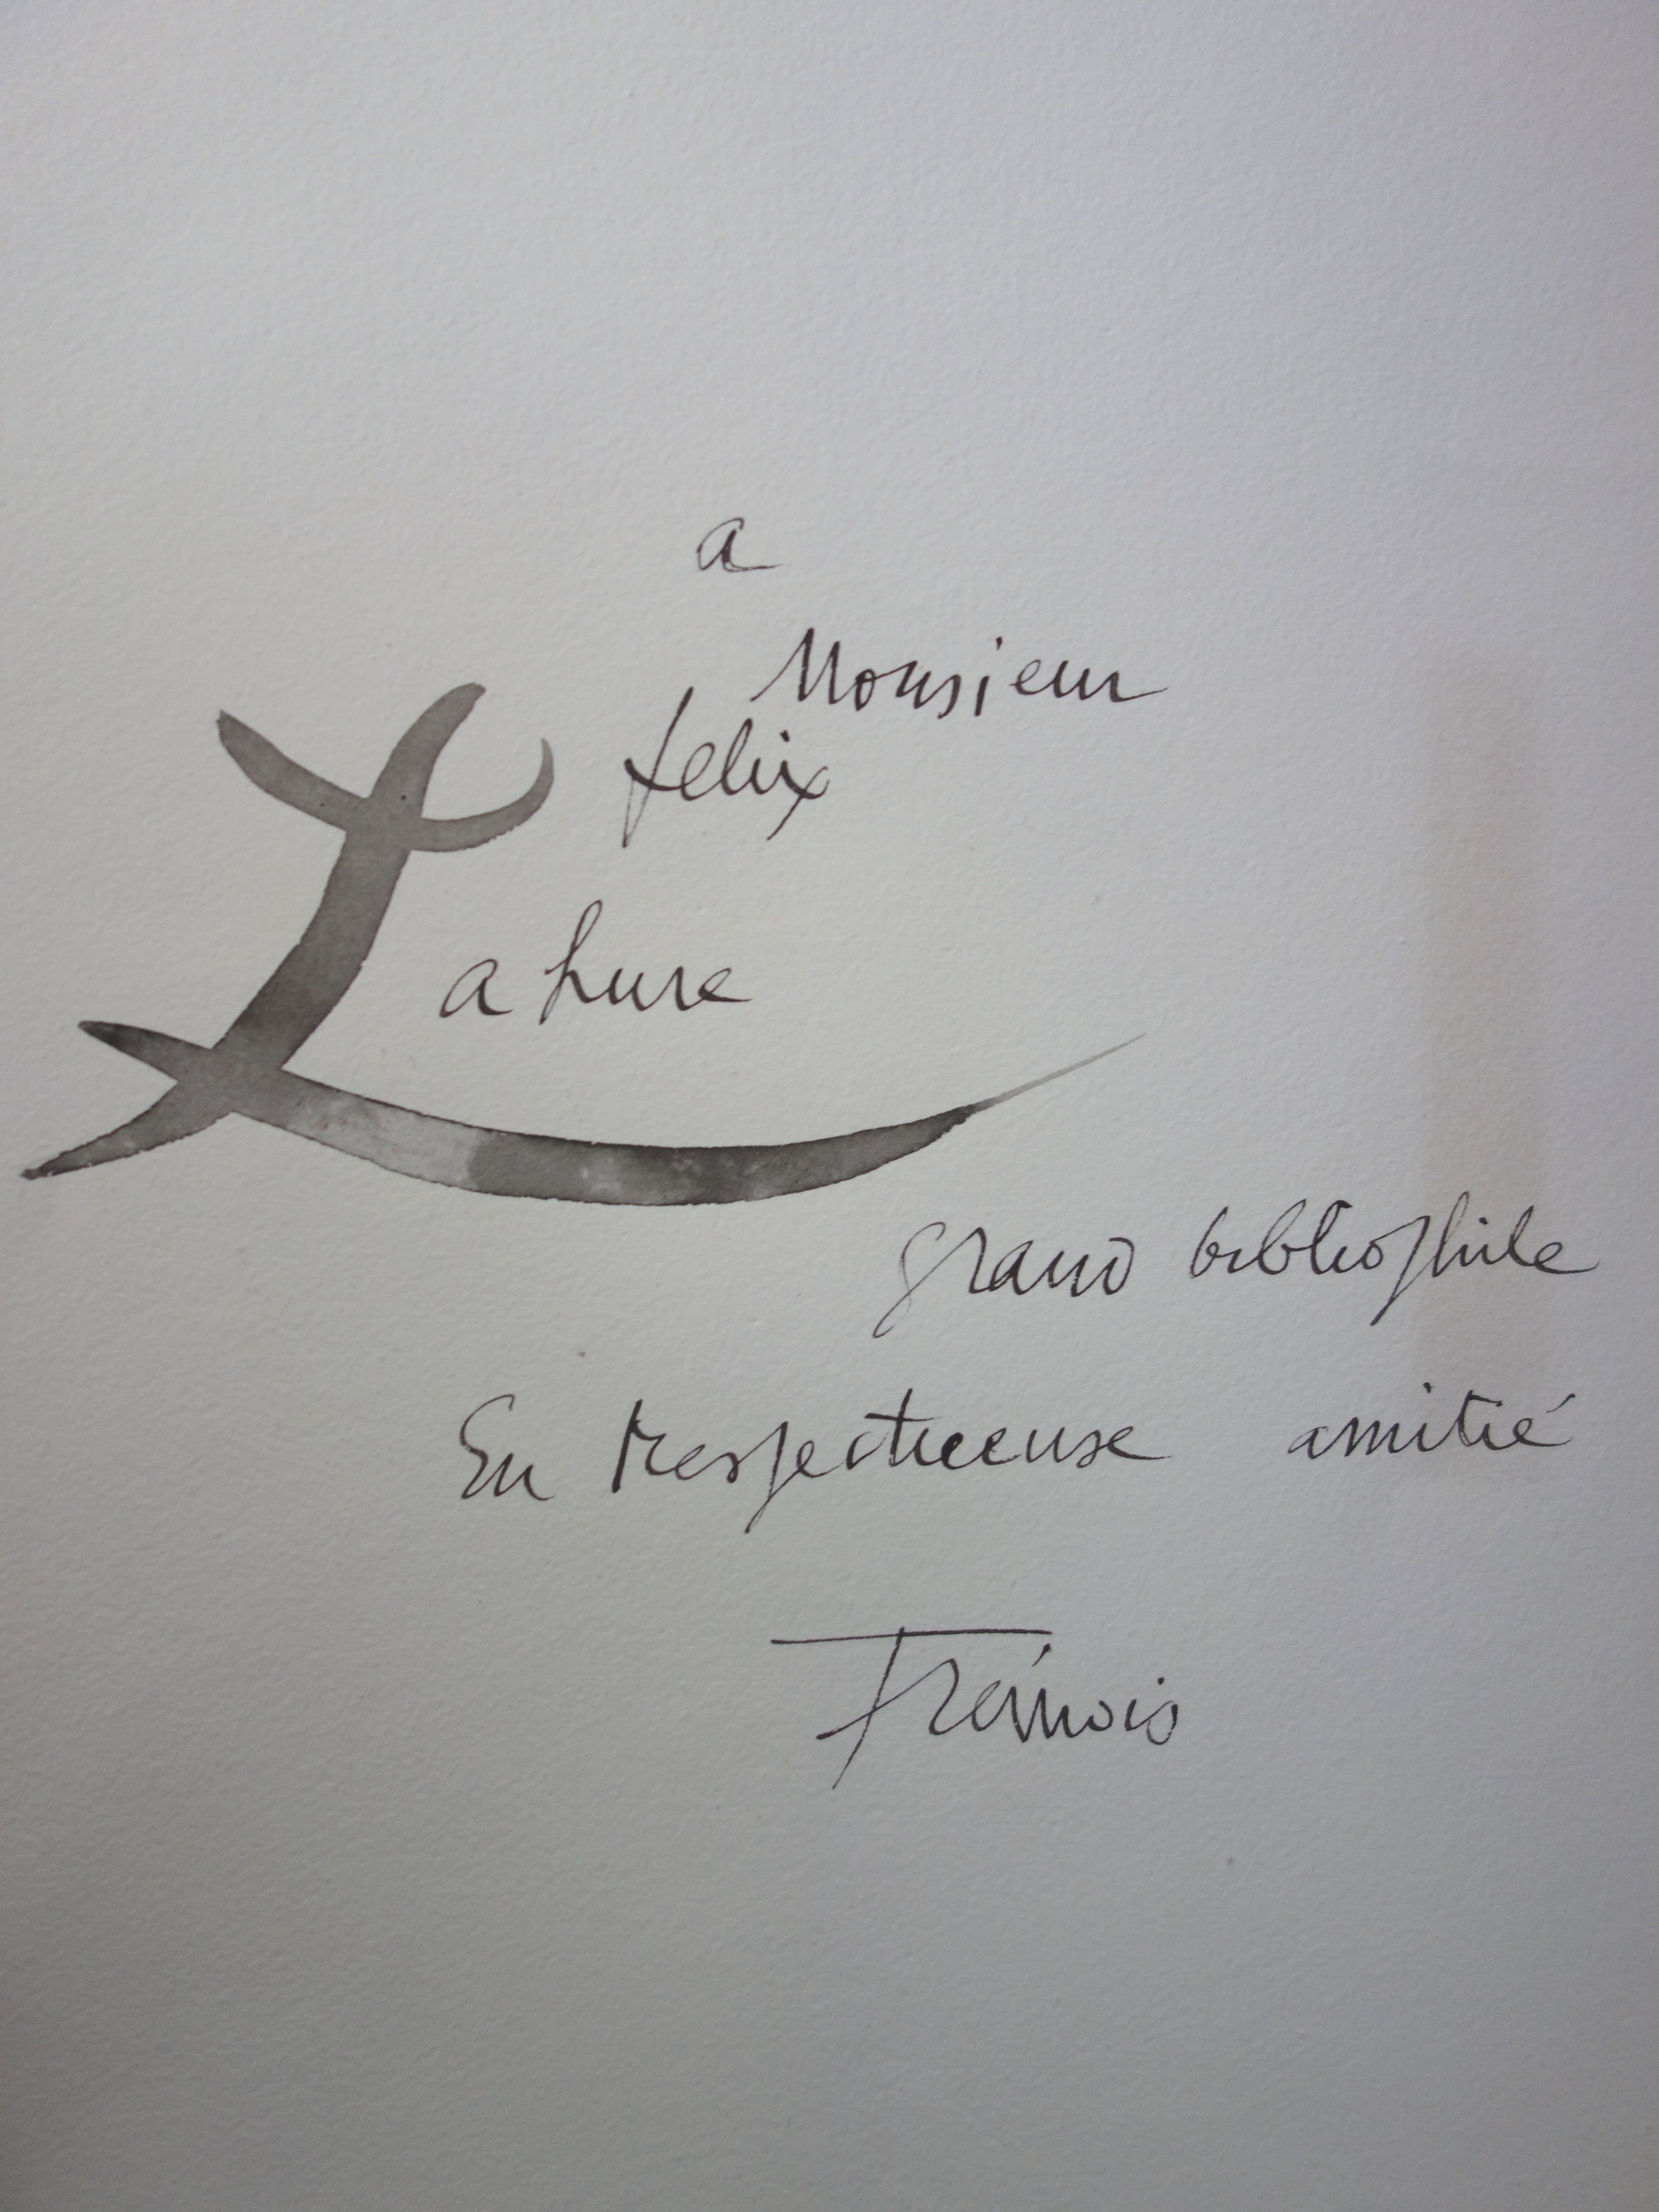 a
Monsieur
felix
Lahure
grand bibliophile
En respectueuse amitié
Trémois